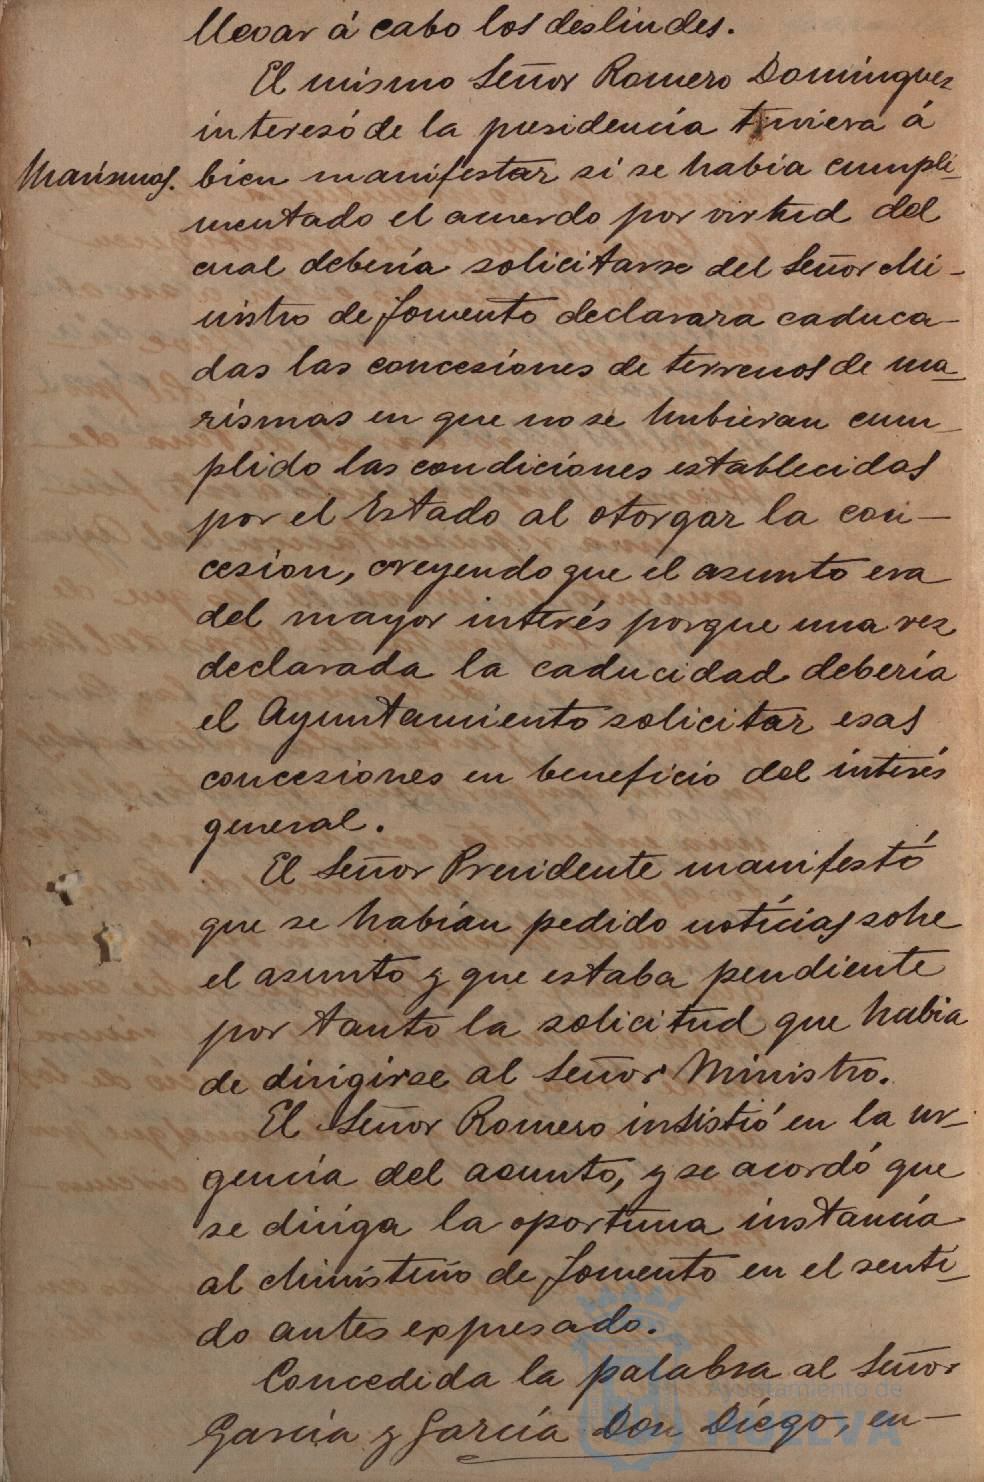 llevar á cabo los deslindes.
El mismo Señor Romero Domínguez
interesó de la presidencia tuviera á
Marismas.
bien manifestar si se habia cumpli-
mentado el acuerdo por virtud del
cual debería solicitarse del Señor Mi-
nistro de Fomento declarara caduca-
das las concesiones de terrenos de ma-
rismas en que no se hubieran cum-
plido las condiciones establecidas
por el Estado al otorgar la con-
cesion, creyendo que el asunto era
del mayor interés porque una vez
declarada la caducidad debería
el Ayuntamiento solicitar esas
concesiones en beneficio del interés
general.
El Señor Presidente manifestó
que se habían pedido noticias sobre
el asunto y que estaba pendiente
por tanto la solicitud que habia
de dirigirse al Señor Ministro.
El Señor Romero insistió en la ur-
gencia del asunto, y se acordó que
se dirija la oportuna instancia
al Ministerio de Fomento en el senti-
do antes expresado.
Concedida la palabra al Señor
García y García Don Diego, en-
Ayuntamiento de
HUELVA